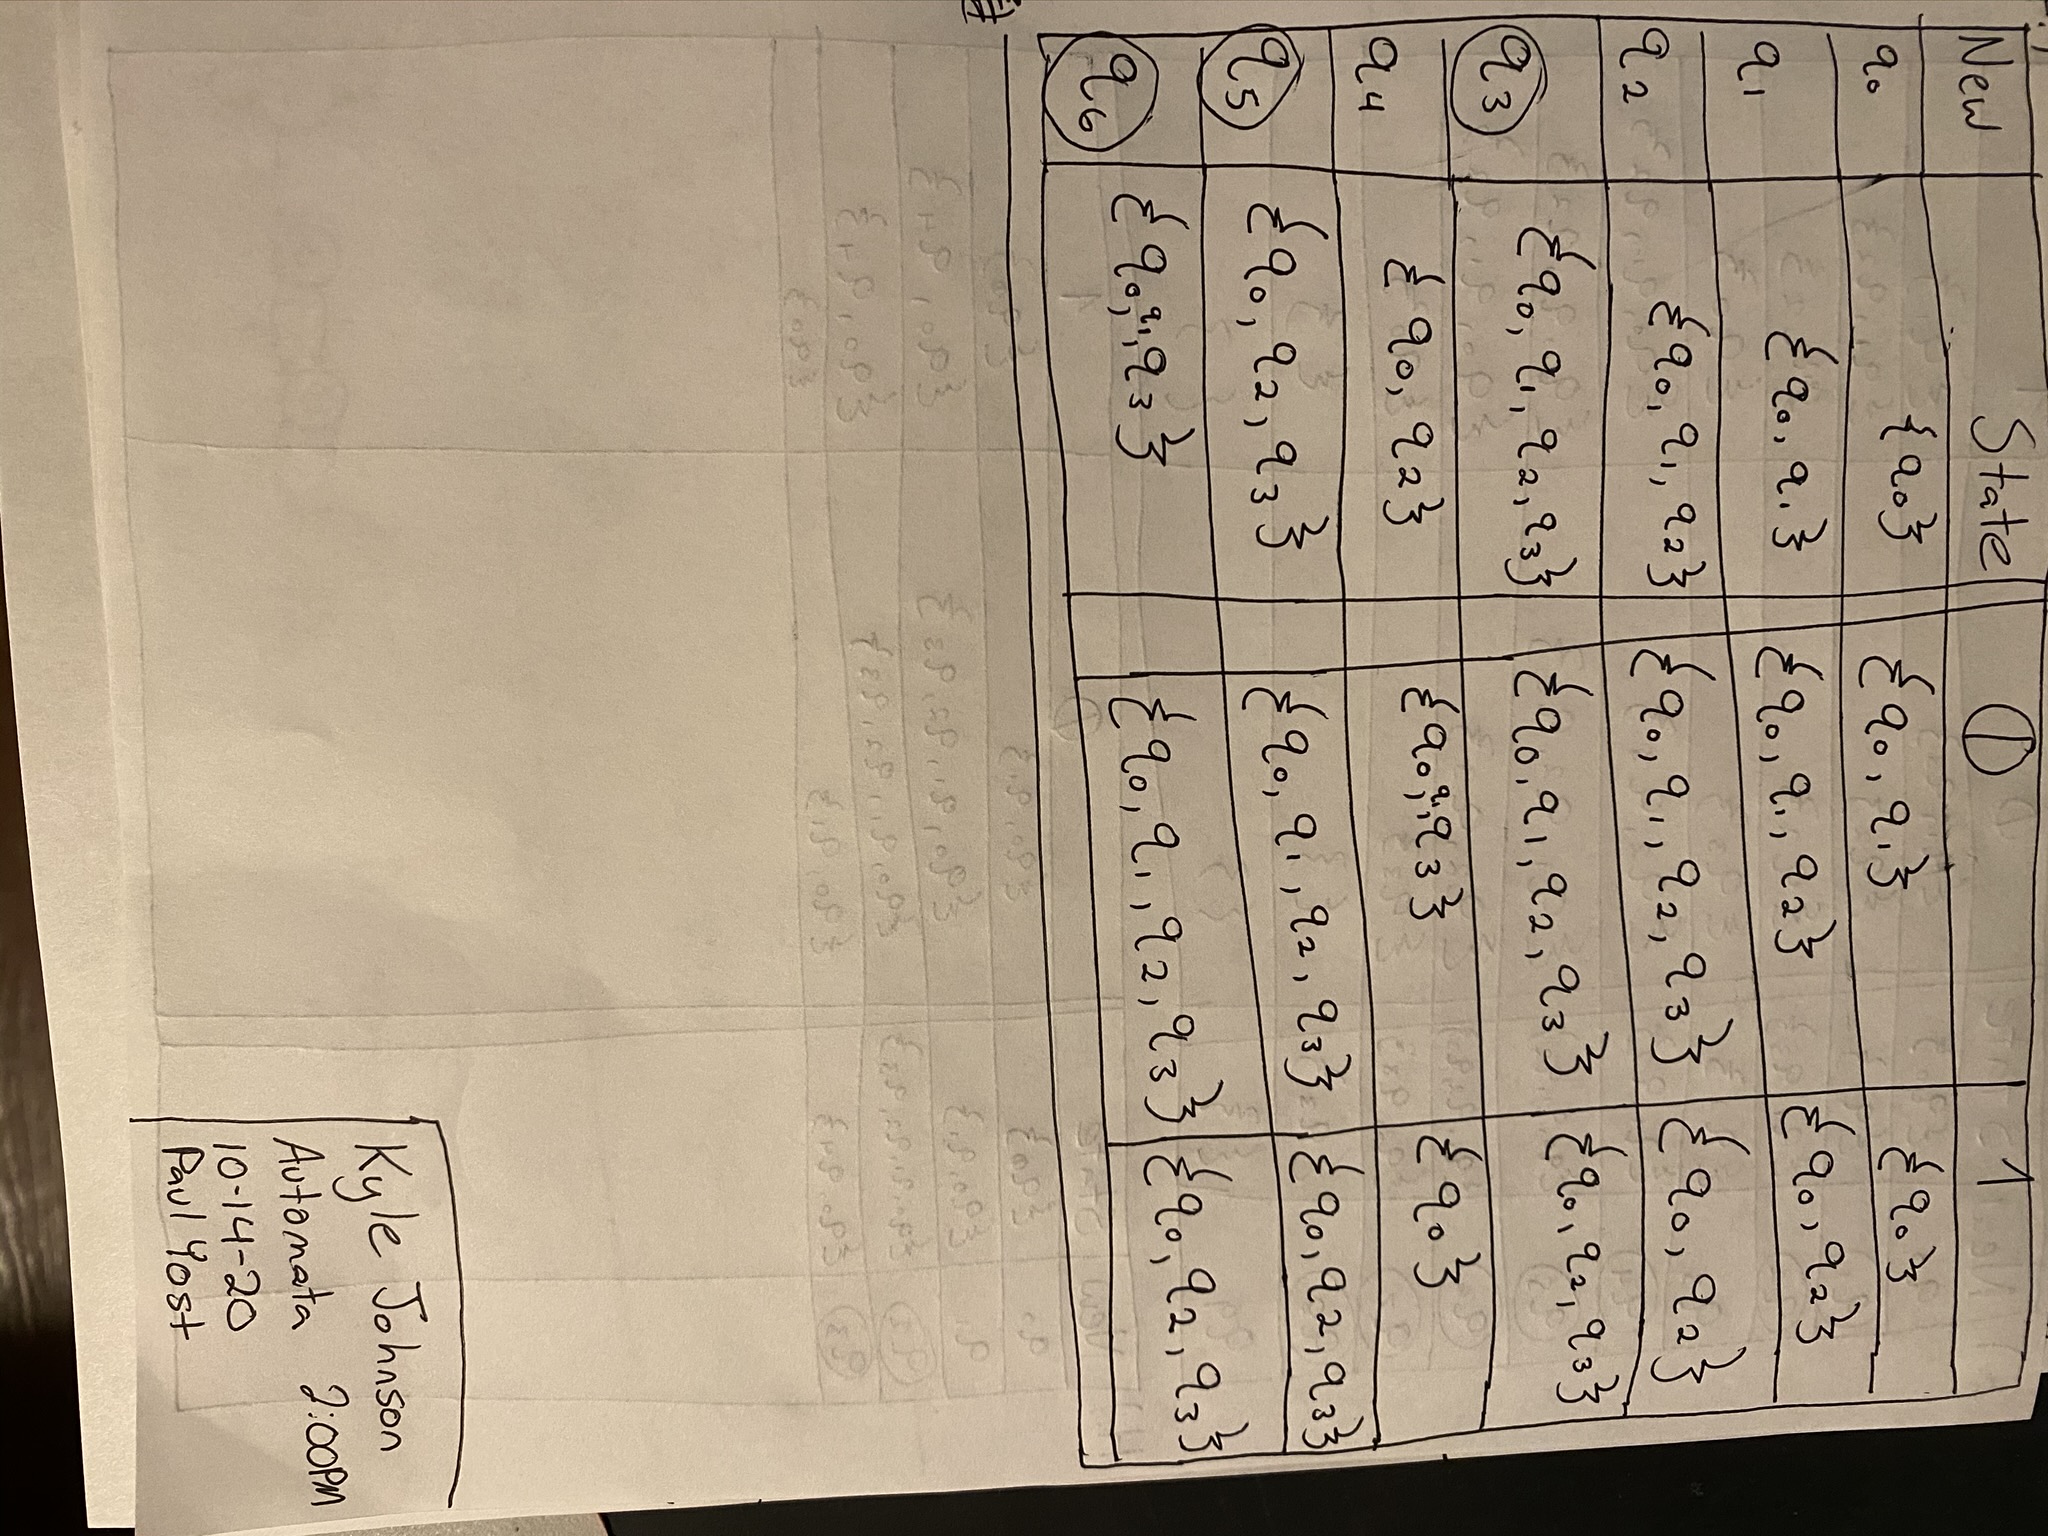 New State 0 1
q0 {q0} {q0, q1} {q0}
q1 {q0, q1} {q0, q1, q2} {q0, q2}
q2 {q0, q1, q2} {q0, q1, q2, q3} {q0, q2}
q3 {q0, q1, q2, q3} {q0, q1, q2, q3} {q0, q2, q3}
q4 {q0, q2} {q0, q1, q3} {q0}
q5 {q0, q2, q3} {q0, q1, q2, q3} {q0, q2, q3}
q6 {q0, q1, q3} {q0, q1, q2, q3} {q0, q2, q3}
Kyle Johnson
Automata 2:00PM
10-14-20
Paul Yost